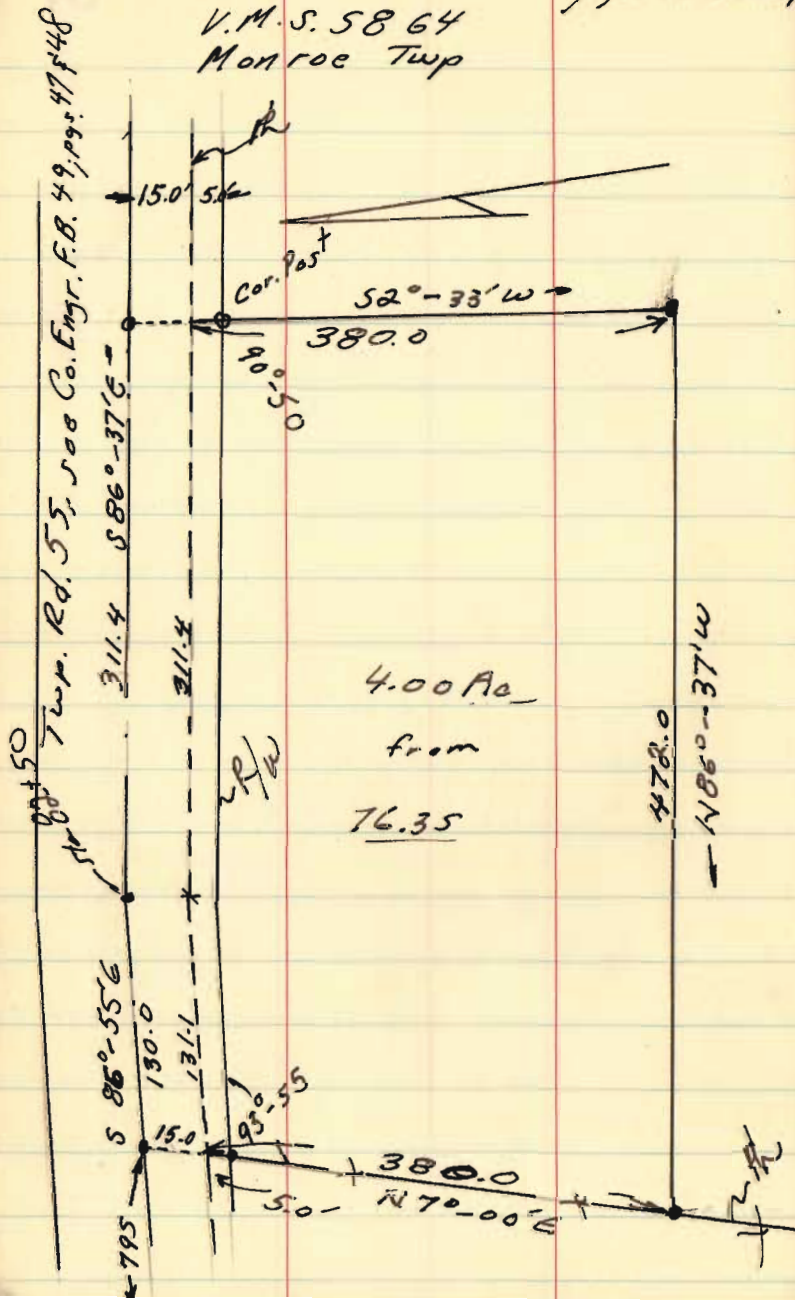 V.M.S. 5864
Monroe Twp
Twp. Rd. 55, see Co. Engr. F.B. 49, pgs. 47 & 48
15.0'
5.0
Cor. Post
S2°-33'W
380.0
90°-50
S86°-37'E
311.4
311.4
R/W
4.00 Ac
from
76.35
472.0
N86°-37'W
+50
S 86°-55'E
130.0
131.1
15.0
93°-55
380.0
N7°-00'E
5.0
795